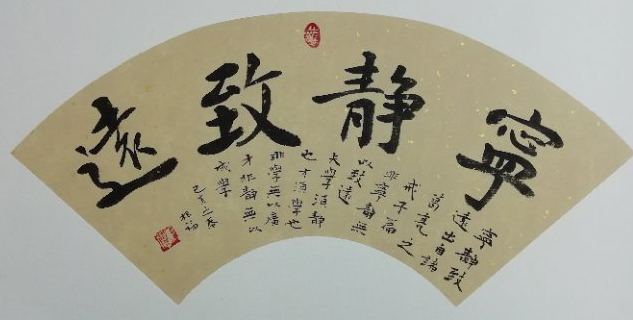 寧静致遠
寧静致
遠出自諸
葛亮之
戒子篇
非寧静無
以致遠
夫學須静
也才須學也
非學無以廣
才非静無以
成學
己亥之春